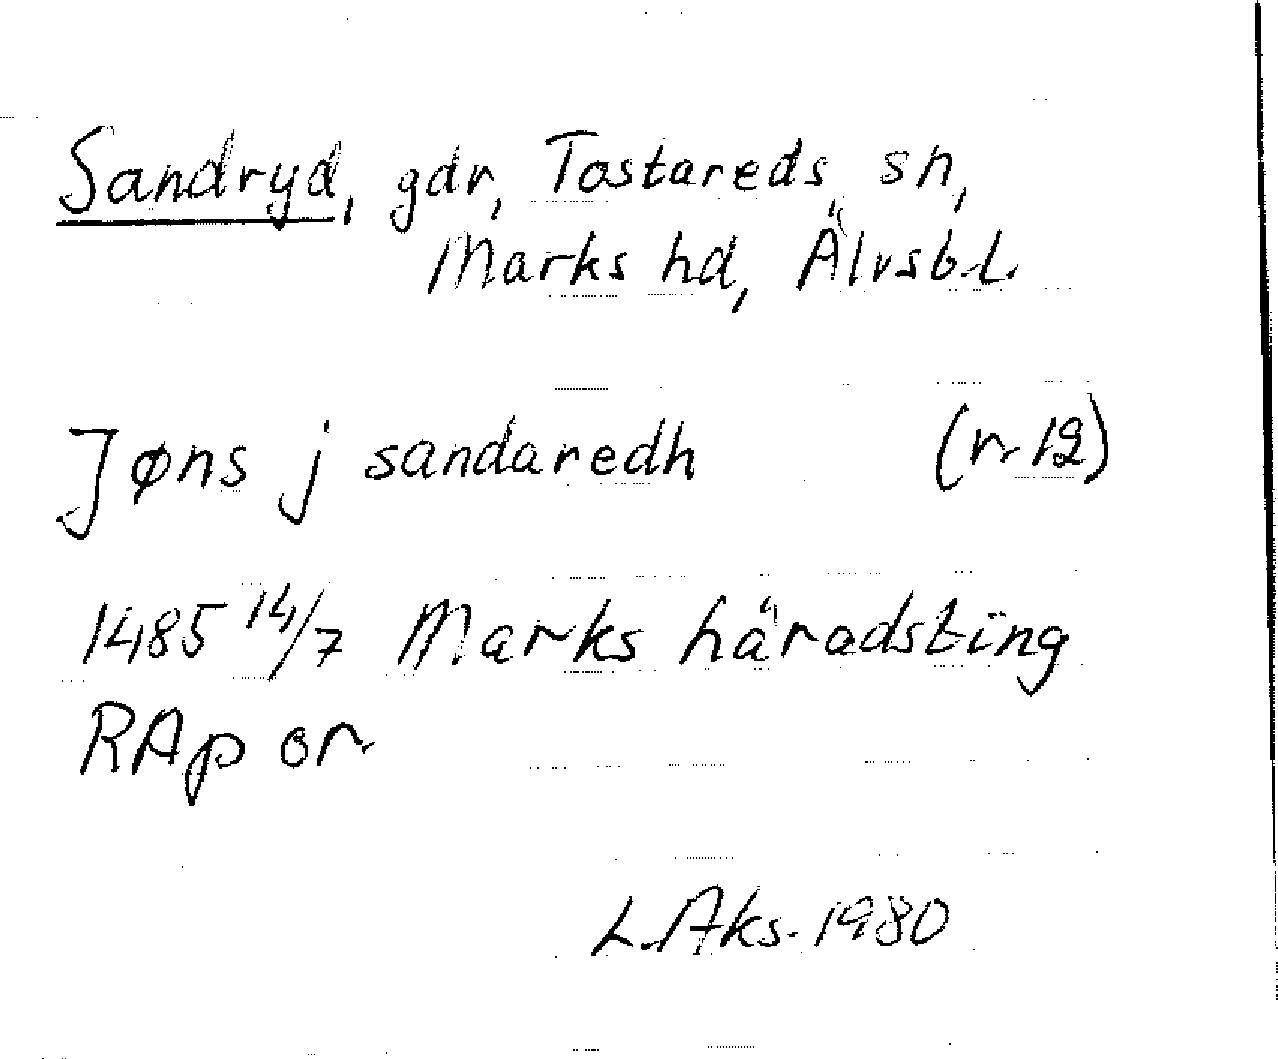 Sandryd, gdr, Tostareds sn,
Marks hd, Älvsb. L.
Jøns j sandaredh (nr 12)
1485 14/7 Marks häradsting
RAp or
L. Aks. 1980